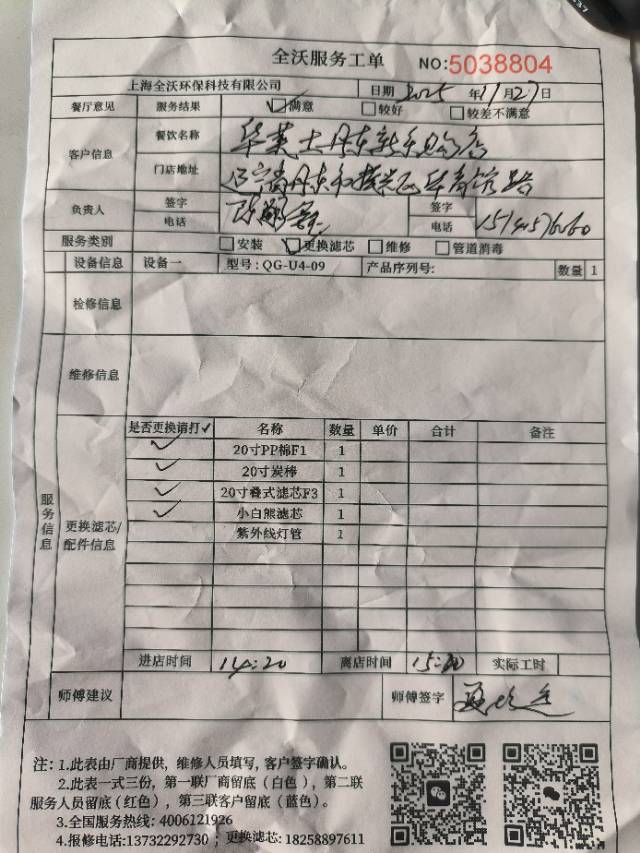 全沃服务工单 NO:5038804
上海全沃环保科技有限公司 日期 2025年11月27日
餐厅意见 服务结果 ☑满意 □较好 □较差不满意
客户信息 餐饮名称 华莱士丹东新
门店地址 辽宁省丹东市振兴区
负责人 签字 签字
电话 电话
服务类别 □安装 ☑更换滤芯 □维修 □管道消毒
设备信息 设备一 型号:QG-U4-09 产品序列号: 数量 1
检修信息
维修信息
服务信息
更换滤芯/配件信息
是否更换请打✓ 名称 数量 单价 合计 备注
✓ 20寸PP棉F1 1
✓ 20寸炭棒 1
✓ 20寸叠式滤芯F3 1
✓ 小白熊滤芯 1
紫外线灯管 1
进店时间 14:20 离店时间 实际工时
师傅建议 师傅签字
注: 1.此表由厂商提供, 维修人员填写, 客户签字确认。
2.此表一式三份, 第一联厂商留底 (白色), 第二联
服务人员留底(红色), 第三联客户留底 (蓝色)。
3.全国服务热线: 4006121926
4.报修电话:13732292730 ; 更换滤芯: 18258897611